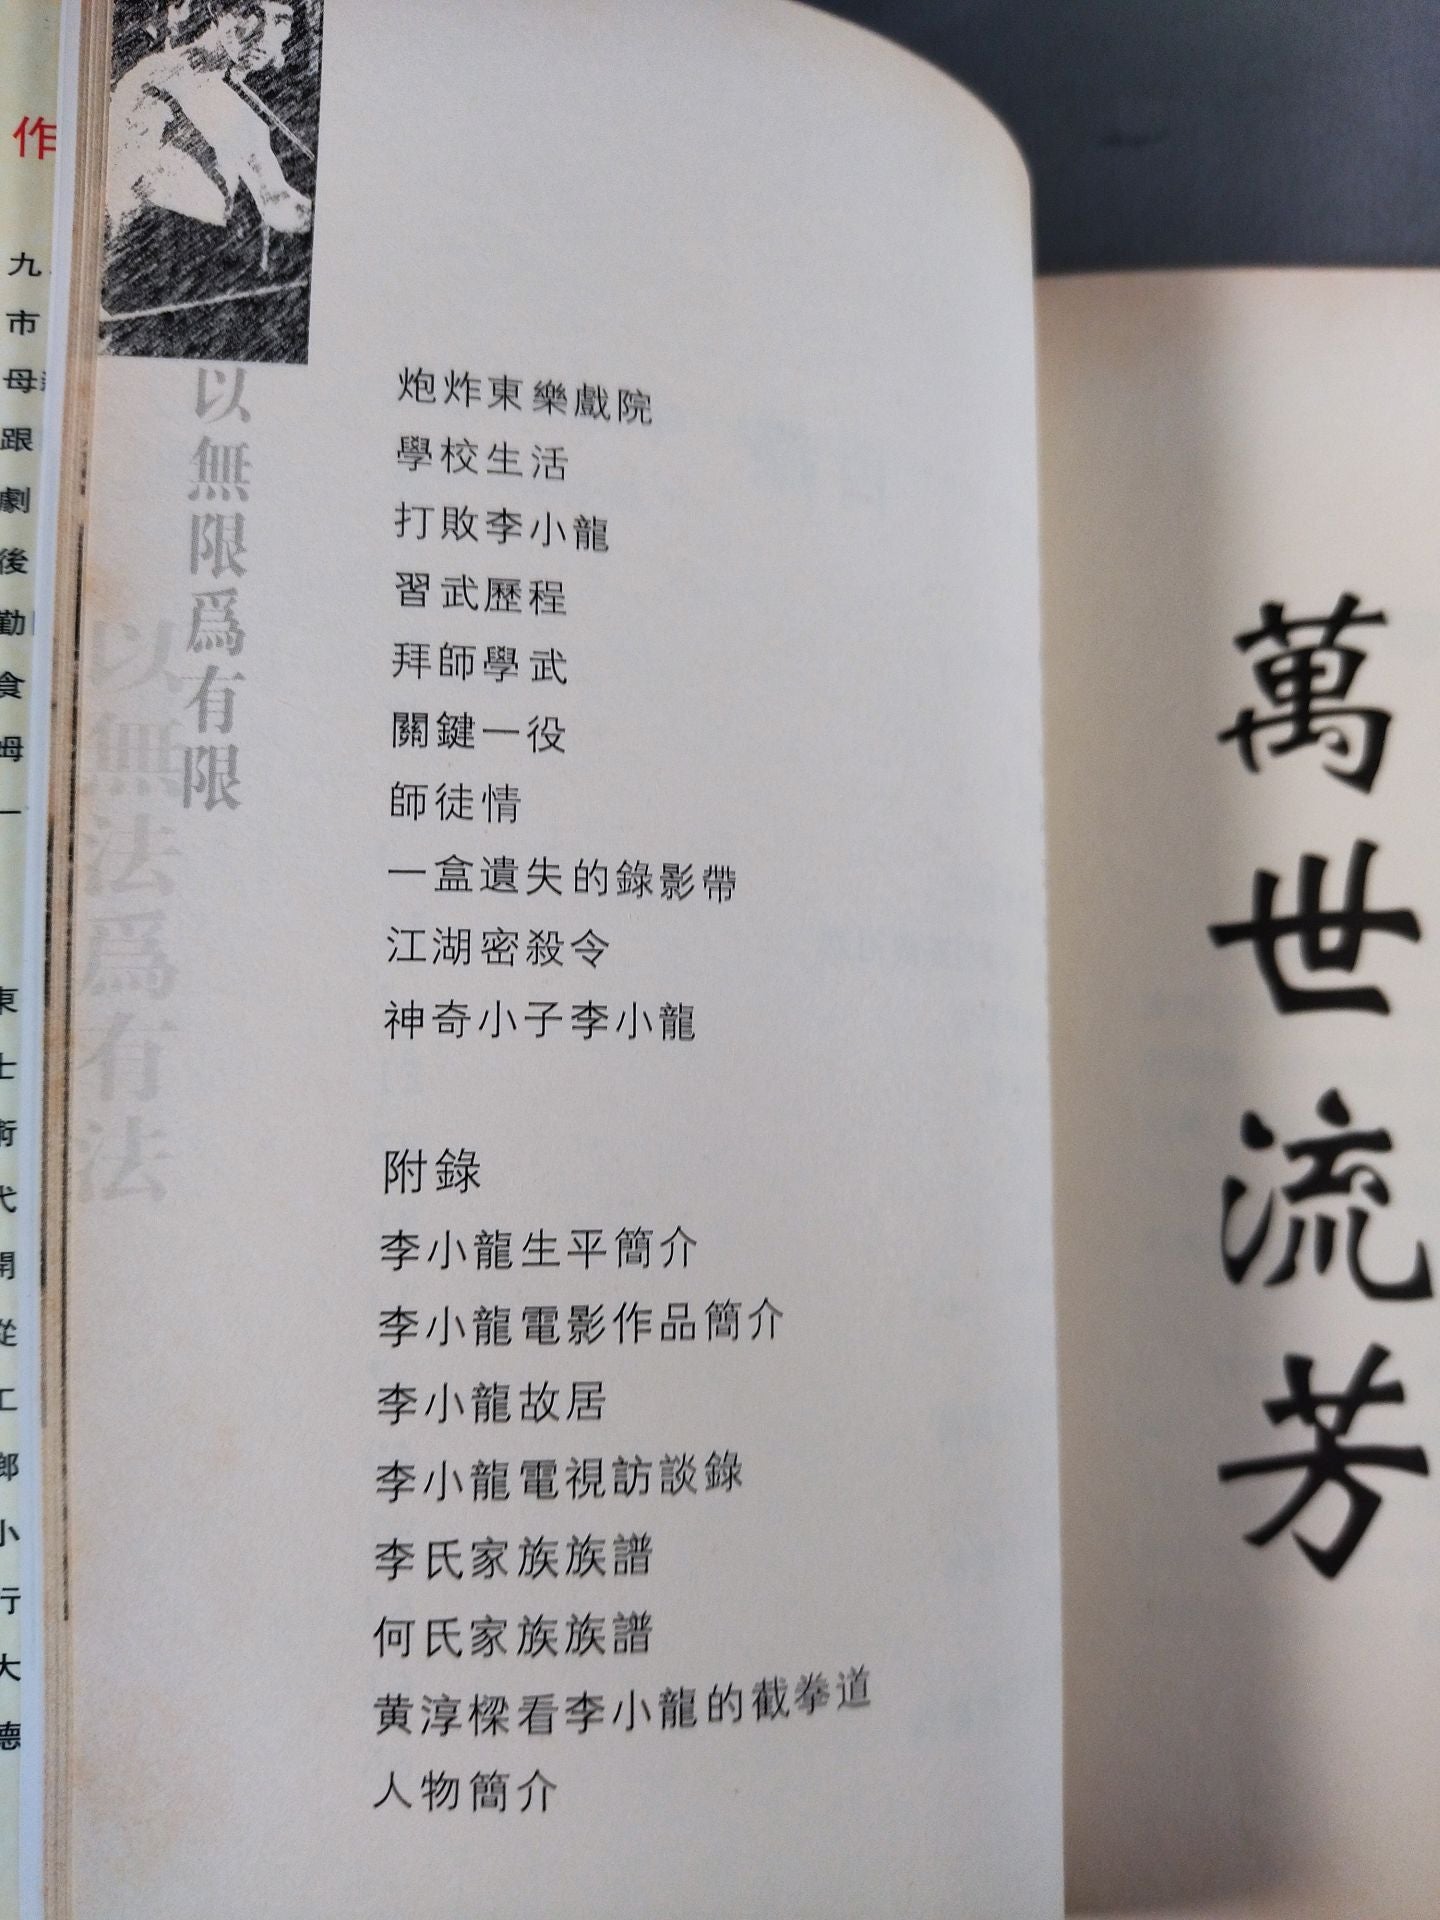 作
九
市
母
跟
劇
後
勤
食
姆
一
東
士
術
代
開
從
工
郎
小
行
大
德
以無限爲有限
以無法爲有法
炮炸東樂戲院
學校生活
打敗李小龍
習武歷程
拜師學武
關鍵一役
師徒情
一盒遺失的錄影帶
江湖密殺令
神奇小子李小龍
附錄
李小龍生平簡介
李小龍電影作品簡介
李小龍故居
李小龍電視訪談錄
李氏家族族譜
何氏家族族譜
黃淳樑看李小龍的截拳道
人物簡介
萬世流芳